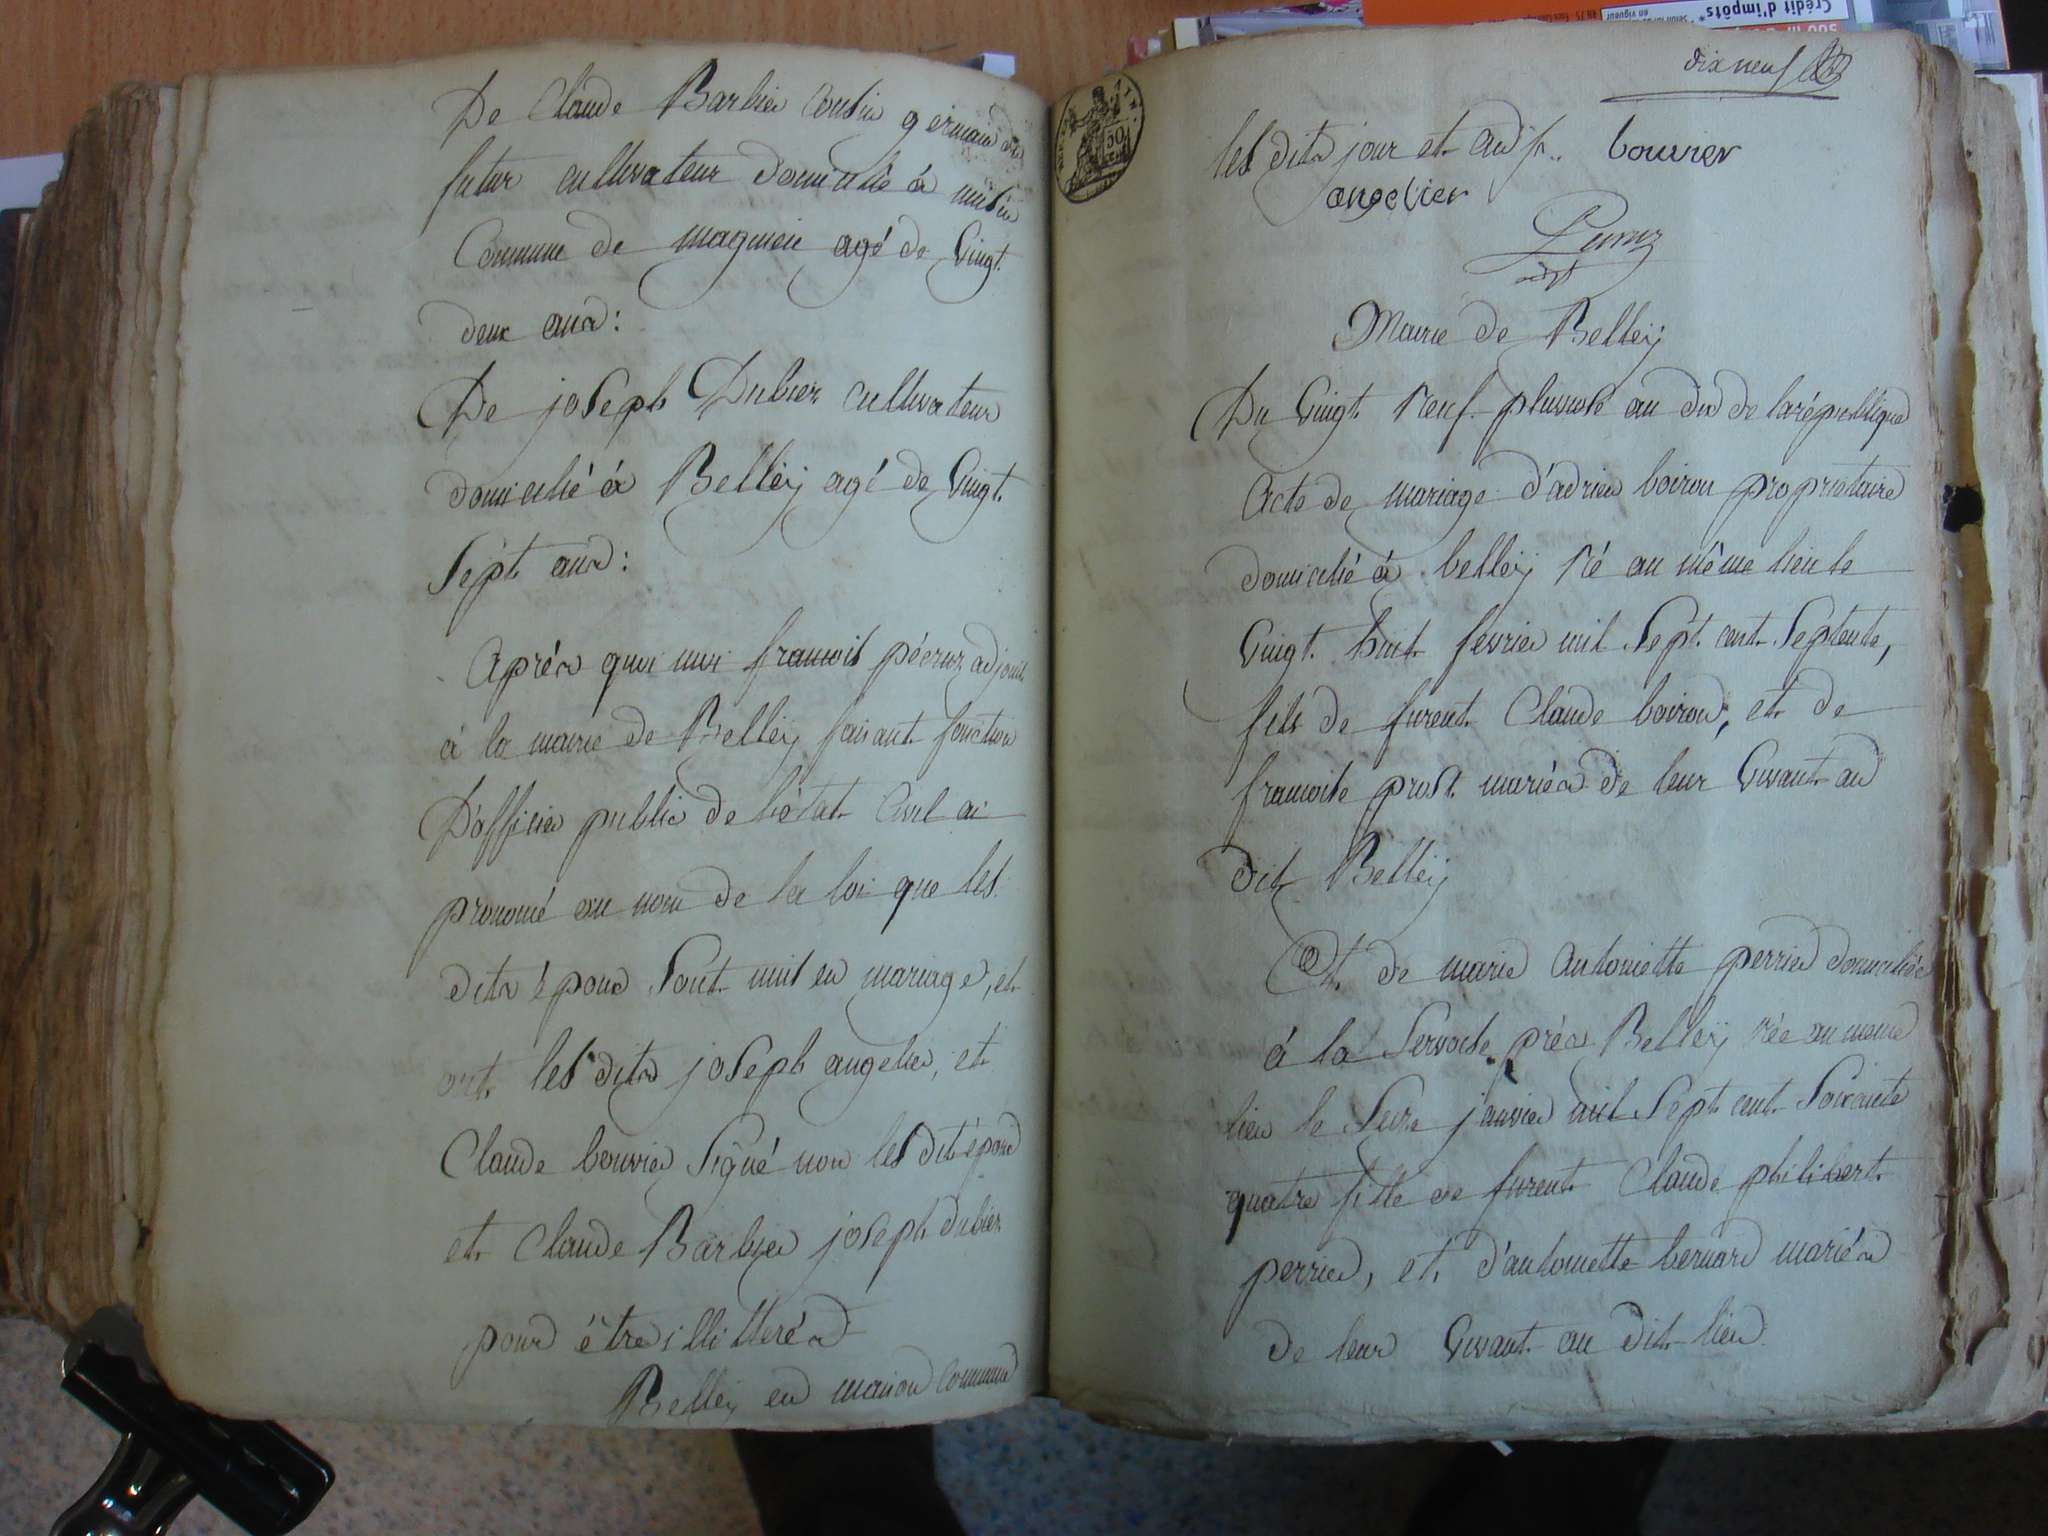 De Claude Barbier cousin germain du
futur cultivateur domicilié à musin
Commune de magnieu agé de Vingt
deux ans:
De joseph Dubiez cultivateur
domicilié à Belleÿ agé de Vingt
Sept ans:
Après quoi moi francois péeruz adjoint
à la mairie de Belleÿ faisant fonction
D'officier public de l'état Civil ai
pronomé au nom de la loi que les
dits épous Sont unis en mariage, et
ont les dits joseph angelier, et
Claude bouvier Signé non les dit épous
et Claude Barbier joseph dubiez
pour être illitterés
Belleÿ en maison commune
dix neuf
les dits jour et an
bouvier
angelier
adjt
Mairie de Belleÿ
Du Vingt Neuf pluviose an dix de la république
Acte de mariage d'adrien boiron propriétaire
domicilié à belleÿ Né au même lieu le
Vingt huit fevrier mil Sept cent Septente,
fils de furent Claude boiron, et de
francoise prost mariés de leur Vivant au
dit Belleÿ
Et de marie antoinette perrier domiciliée
à la Servode près Belleÿ Née au meme
lieu le Seize janvier mil Sept cent Soixante
quatre fille de furent Claude philibert
perrier, et d'antoinette bernard mariés
de leur Vivant au dit lieu
Crédit d'impôts
en vigueur